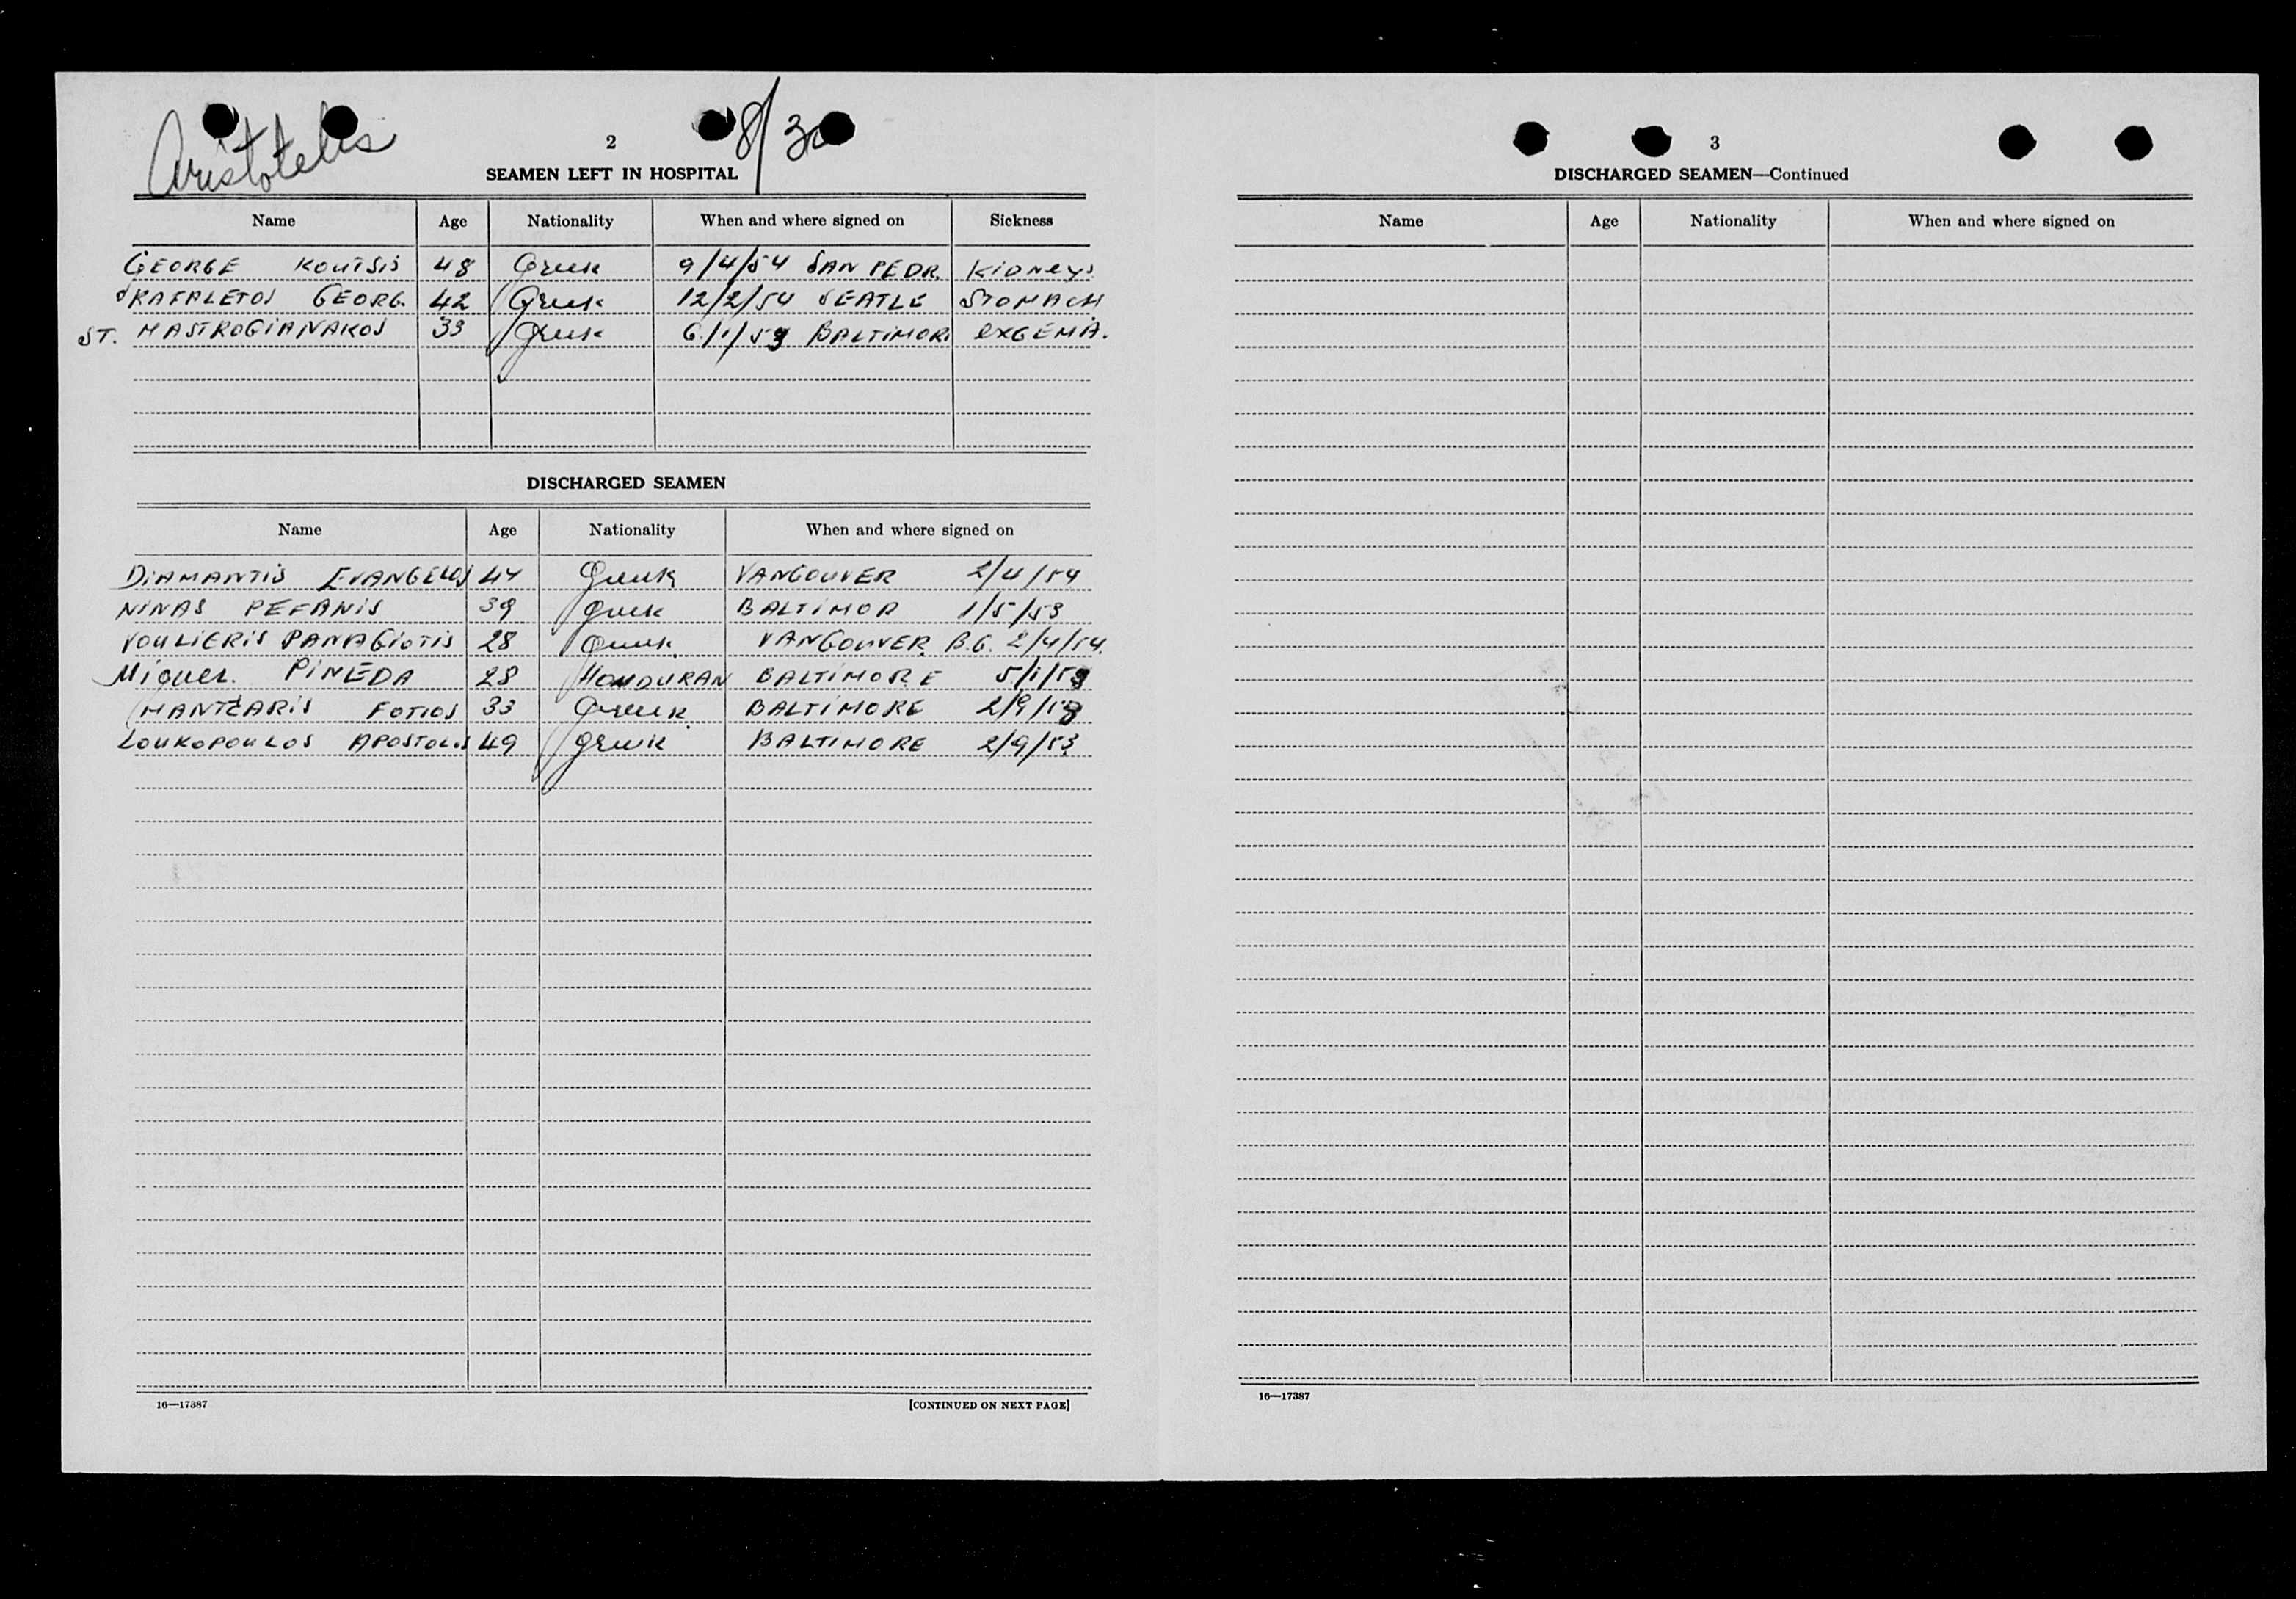 Aristotelis
8/30
2
SEAMEN LEFT IN HOSPITAL
Name Age Nationality When and where signed on Sickness
GEORGE KOUTSIS 48 Greek 9/4/54 SAN PEDR. KIDNEYS
SKAFALETOS GEORG. 42 Greek 12/2/54 SEATLE STOMACH
ST. MASTROGIANAKOS 33 Greek 6/1/53 BALTIMOR EXGEMA.
DISCHARGED SEAMEN
Name Age Nationality When and where signed on
DIAMANTIS EVANGELOS 44 Greek VANCOUVER 2/4/54
NINAS PEFANIS 39 Greek BALTIMOR 1/5/53
VOULIERIS PANAGIOTIS 28 Greek VANCOUVER B.C. 2/4/54.
MIGUEL. PINEDA 28 HONDURAN BALTIMORE 5/1/53
MANTZARIS FOTIOS 33 Greek. BALTIMORE 2/9/53
LOUKOPOULOS APOSTOLOS 49 Greek BALTIMORE 2/9/53
16—17387 [CONTINUED ON NEXT PAGE]
3
DISCHARGED SEAMEN—Continued
Name Age Nationality When and where signed on
16—17387